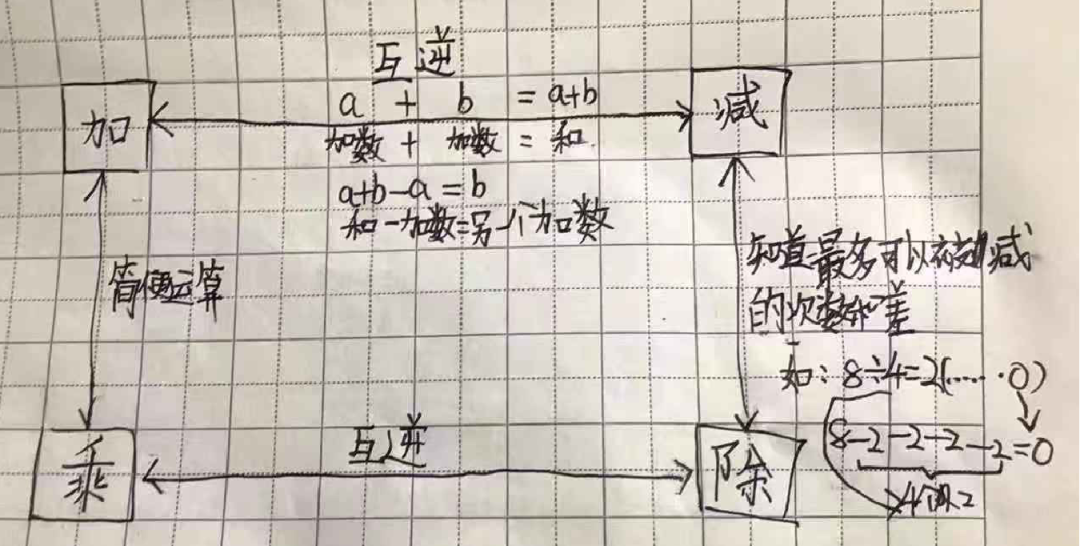 互逆
加
a + b = a+b
减
加数 + 加数 = 和
a+b-a=b
和-加数=另一个加数
简便运算
知道最多可以被减
的次数和差
如：8÷4=2(……0)
8-2-2-2-2=0
4个2
乘
互逆
除